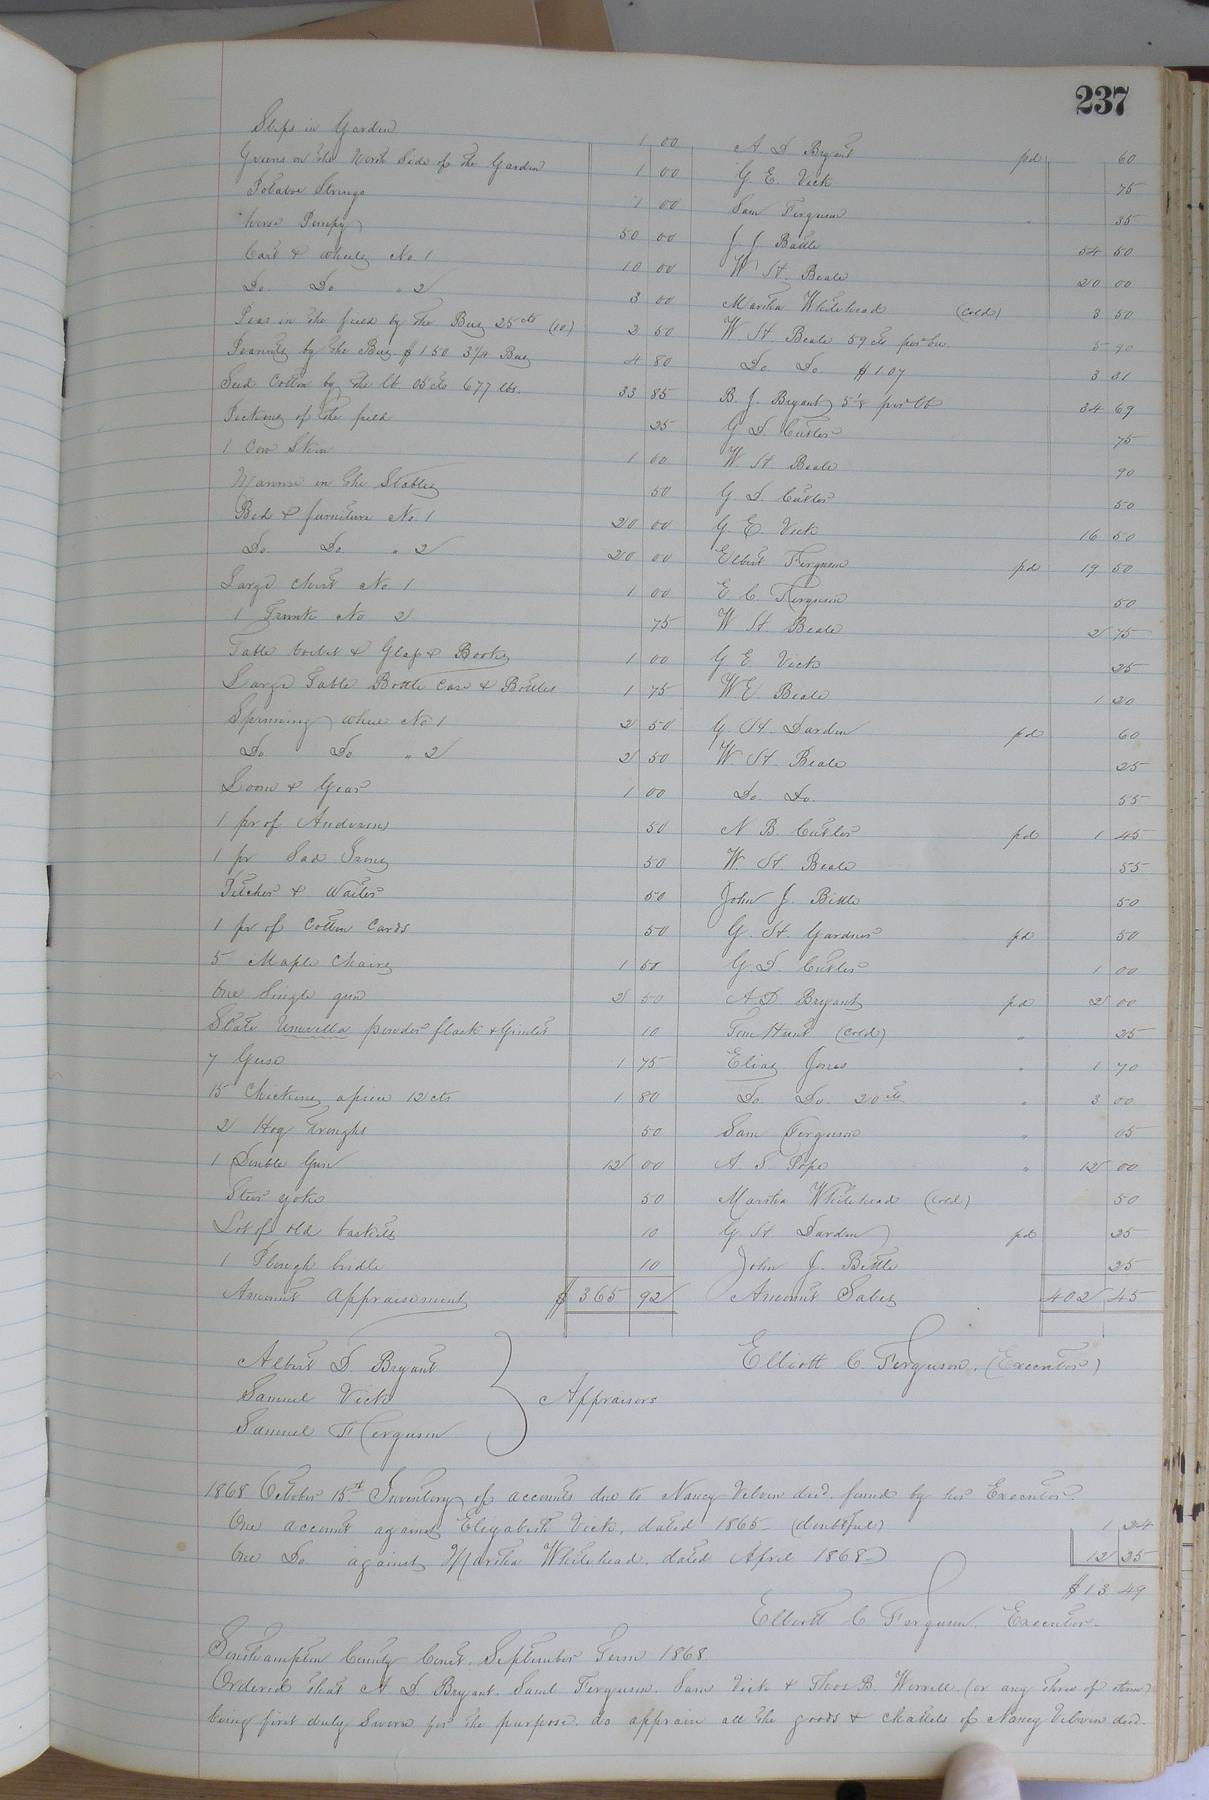 237
Slips in Garden 1 00 A D Bryant pd 60
Greens on the North Side of the Garden 1 00 G. E. Vick 75
Potatoe Strings 1 00 Sam Ferguson " 35
horse Pompy 50 00 J J Battle 54 50
Cart & wheels No 1 10 00 W. H. Beale 20 00
Do Do " 2 3 00 Martha Whitehead (cold) 3 50
Peas in the field by the Bus 25 cts (10) 2 50 W. H. Beale 59 cts per bu. 5 90
Peanuts by the Bus $1.50 3 1/4 Bus 4 80 Do Do $1.07 3 31
Seed Cotton by the lb 05 cts 677 lbs. 33 85 B. J. Bryant 5 1/8 per lb 34 69
Picking of the field 25 G. D. Cutler 75
1 Cow Skin 1 00 W H Beale 90
Manure in the Stables 50 G. D. Cutler 50
Bed & furniture No 1 20 00 G E Vick 16 50
Do Do " 2 20 00 Elbert Ferguson pd 19 50
Large Chest No 1 1 00 E. C. Ferguson 50
1 Trunk No 2 75 W H. Beale 2 75
Table toilet & Glass & Books 1 00 G E Vick 25
Large Table Bottle case & Bottles 1 75 W. E. Beale 1 20
Spinning wheel No 1 2 50 G. H. Darden pd 60
Do Do " 2 2 50 W. H. Beale 25
Loom & Gear 1 00 Do. Do. 55
1 pr of Andirons 50 N B. Cutler pd 1 45
1 pr Sad Irons 50 W. H Beale 55
Pitcher & Waiter 50 John J. Bittle 50
1 pr of Cotton Cards 50 G. H. Gardner pd 50
5 Maple Chairs 1 50 G. D. Cutler 1 00
One Single gun 2 50 A D Bryant pd 2 00
Slate Umvella powder flask & Gimlet 10 Tom Hunt (cold) " 25
7 Geese 1 75 Elias Jones " 1 70
15 Chickens apiece 12 cts 1 80 Do Do. 20 cts " 3 00
2 Hog troughs 50 Sam Ferguson " 05
1 Double Gun 12 00 A S Pope " 12 00
Steer yoke 50 Martha Whitehead (cold) 50
Lot of old baskets 10 G H Darden pd 25
1 Plough bridle 10 John J. Bittle 25
Amount Appraisement $ 365 92 Amount Sales 402 45
Albert D. Bryant Elliott C. Ferguson, (Executor)
Samuel Vick Appraisors
Samuel Ferguson
1868 October 15th Inventory of accounts due to Nancy Vilvin decd. found by her Executor.
One account against Elizabeth Vick, dated 1865 - (doubtful) 1 24
One Do against Martha Whitehead. dated April 1868 12 25
$13 49
Elliott C. Ferguson, Executor -
Southampton County Court, September Term 1868
Ordered that A D. Bryant. Saml Ferguson. Sam Vick & Thos B. Worrell (or any three of them)
being first duly Sworn for the purpose. do appraise all the goods & chattels of Nancy Vilvin decd.